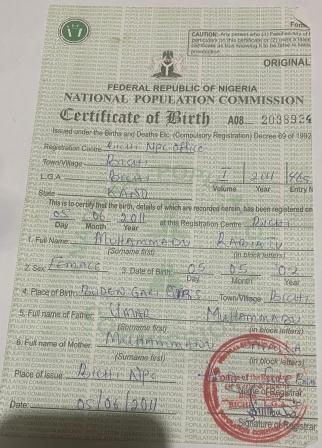 Form
CAUTION: Any person who (1) Falsifies any of
particulars on this certificate or (2) uses a falsifi
certificate as true knowing it to be false is liable
prosecution
ORIGINAL
FEDERAL REPUBLIC OF NIGERIA
NATIONAL POPULATION COMMISSION
Certificate of Birth A08
Issued under the Births and Deaths Etc. (Compulsory Registration) Decree 69 of 1992
Registration Centre BICHI NPC OFFICE
Town/Village BICHI
L.G.A BICHI I 2011
Volume Year Entry N
State KANO
This is to certify that the birth, details of which are recorded herein, has been registered on
05 06 2011 at this Registration Centre BICHI
Day Month Year
1. Full Name: MUHAMMADU RABIATU
(Surname first) (in block letters)
2. Sex: FEMALE 3. Date of Birth: 05 05 02
Day Month Year
4. Place of Birth: Town/Village BICHI
5. Full name of Father: UMAR MUHAMMADU
(Surname first) (in block letters)
6. Full name of Mother: MUHAMMADU
(Surname first) (in block letters)
Place of issue BICHI NPC
Date: 05/06/2011
Signature of Registrar